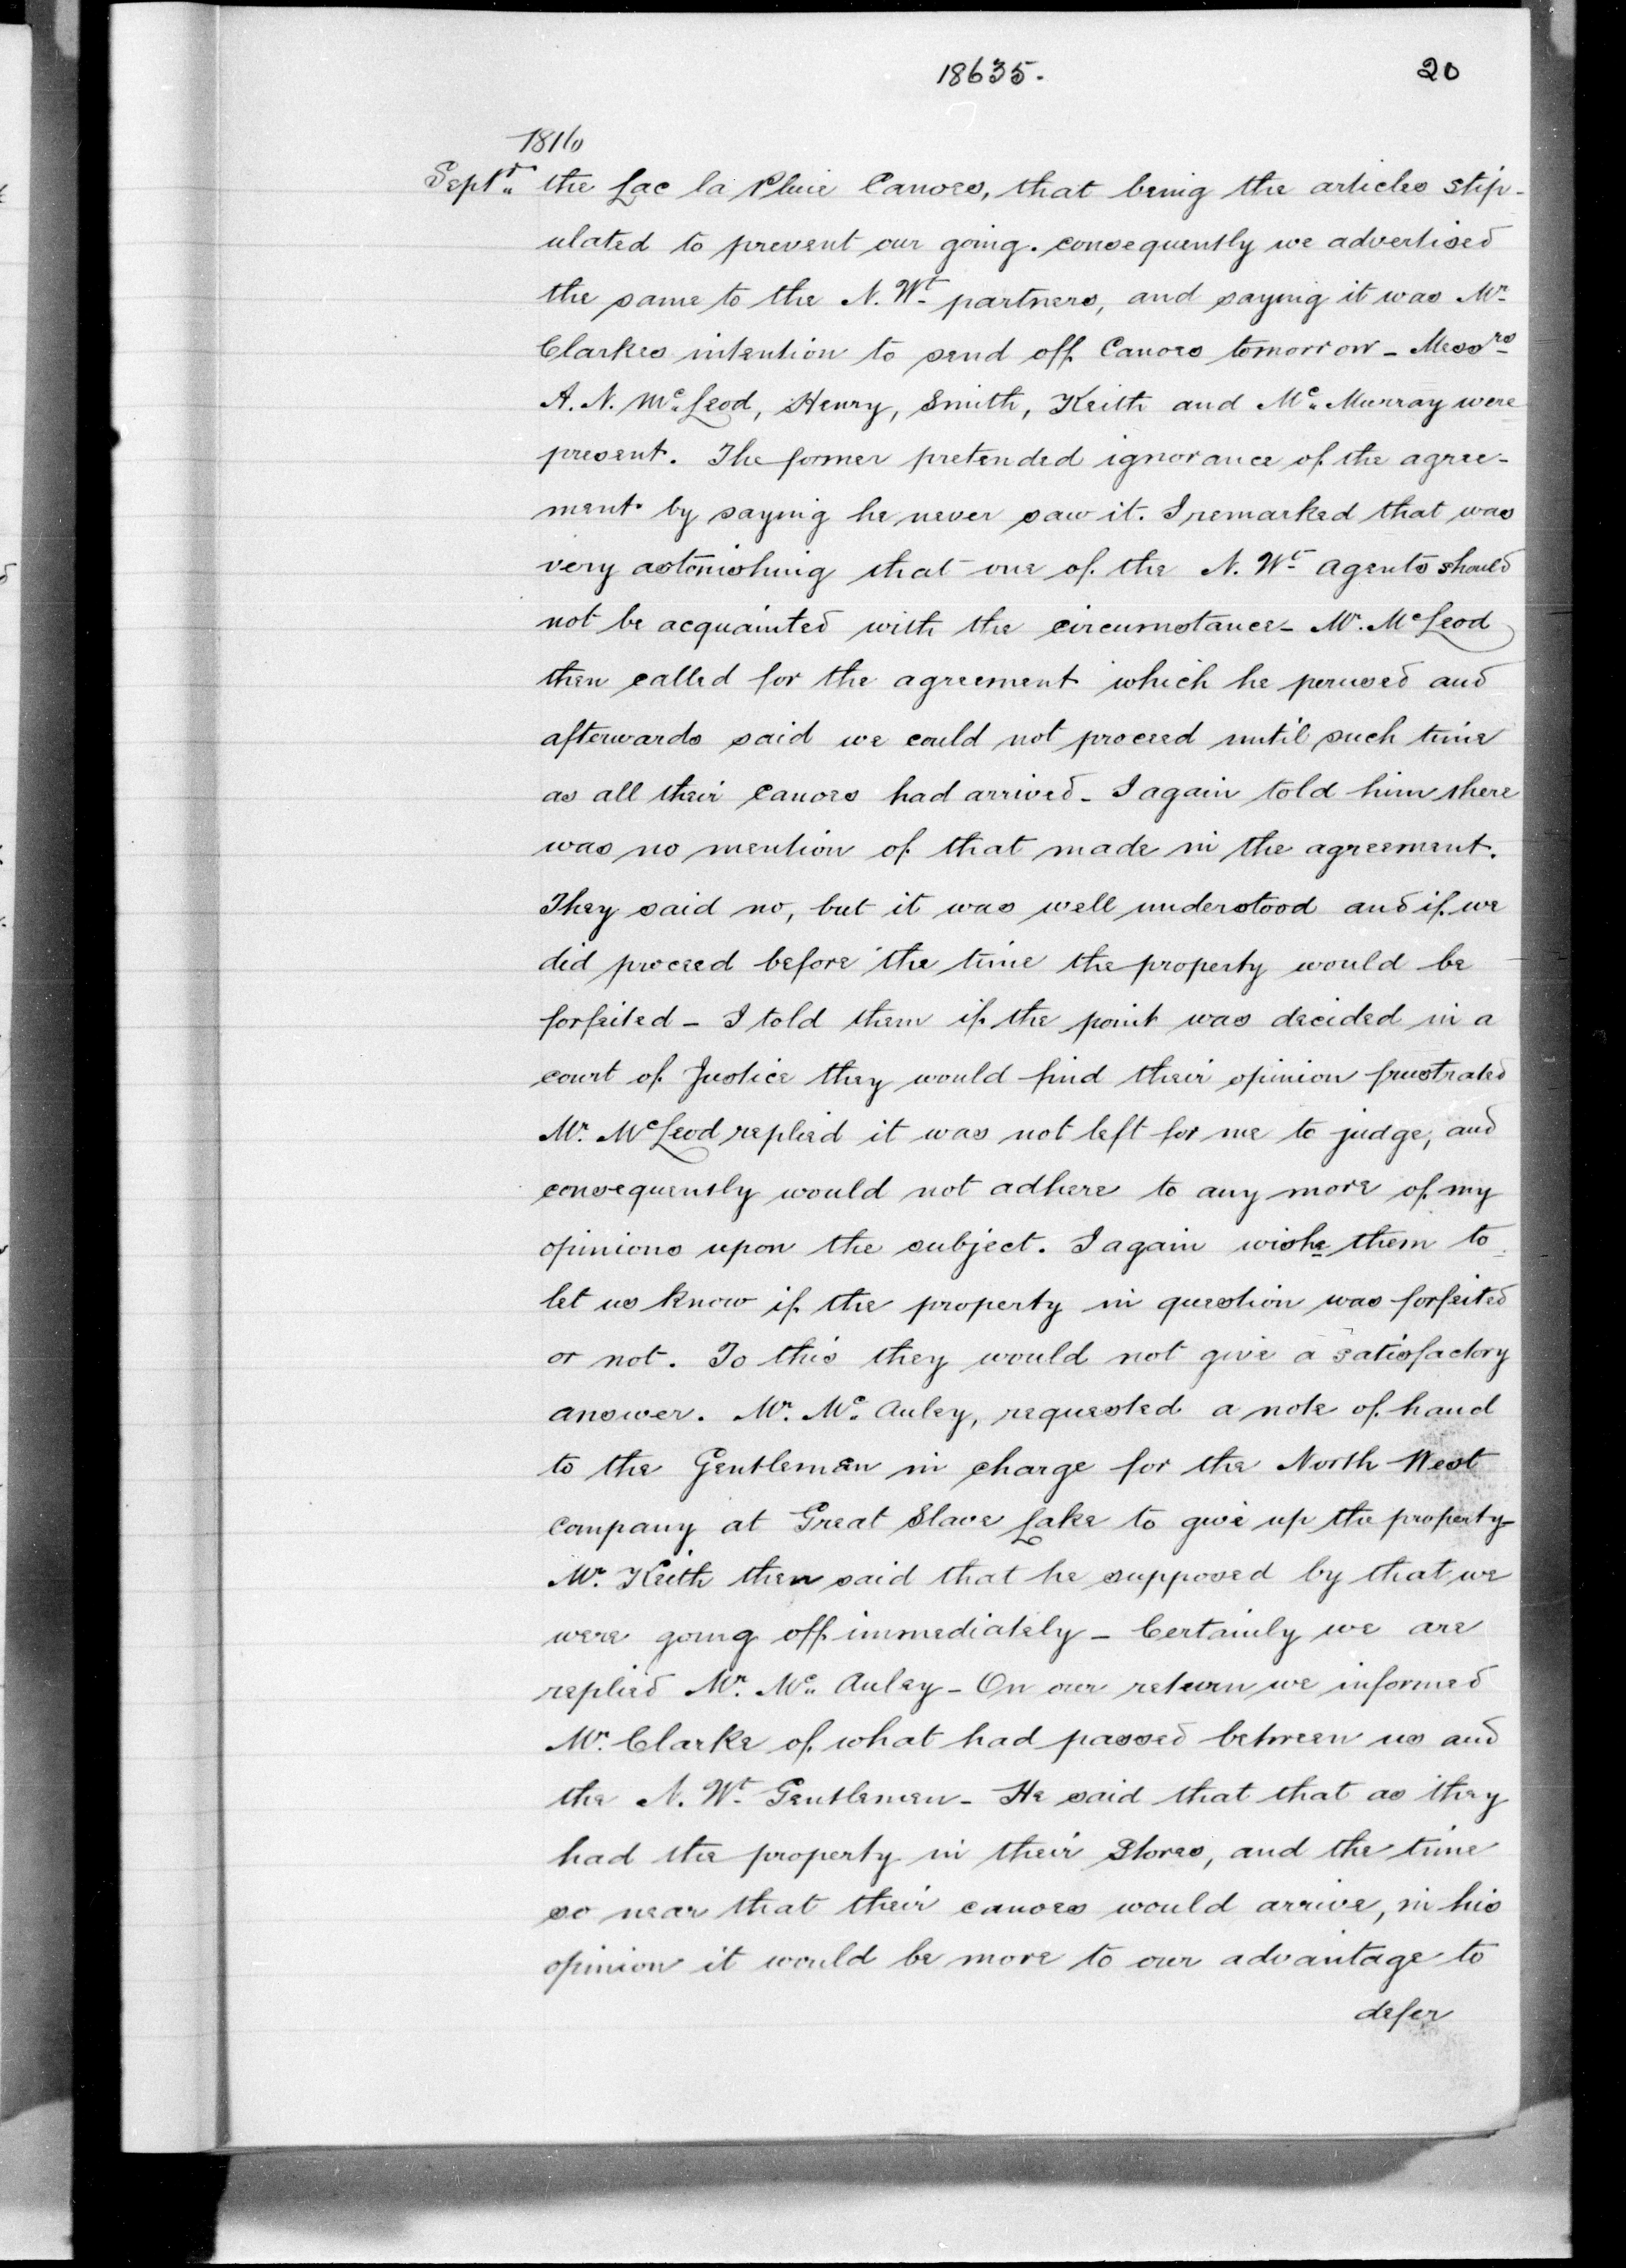 18635. 20
1816
Septr the Lac la Pluie Canoes, that being the articles stip-
ulated to prevent our going. consequently we advertised
the same to the N. Wt partners, and saying it was Mr
Clarkes intention to send off Canoes tomorrow - Messrs
A. N. McLeod, Henry, Smith, Keith and Mc Murray were
present. The former pretended ignorance of the agree-
ment by saying he never saw it. I remarked that was
very astonishing that one of the N. Wt agents should
not be acquainted with the circumstance - Mr. McLeod
then called for the agreement which he perused and
afterwards said we could not proceed until such time
as all their canoes had arrived - I again told him there
was no mention of that made in the agreement.
They said no, but it was well understood and if we
did proceed before the time the property would be
forfeited - I told them if the point was decided in a
court of Justice they would find their opinion frustrated
Mr. McLeod replied it was not left for me to judge, and
consequently would not adhere to any more of my
opinions upon the subject. I again wishe them to
let us know if the property in question was forfeited
or not. To this they would not give a satisfactory
answer. Mr. Mc Auley, requested a note of hand
to the Gentlemen in charge for the North West
Company at Great Slave Lake to give up the property-
Mr. Keith then said that he supposed by that we
were going off immediately - Certainly we are
replied Mr. Mc Auley - On our return we informed
Mr. Clarke of what had passed between us and
the N. Wt Gentlemen - He said that that as they
had the property in their Stores, and the time
so near that their canoes would arrive, in his
opinion it would be more to our advantage to
defer